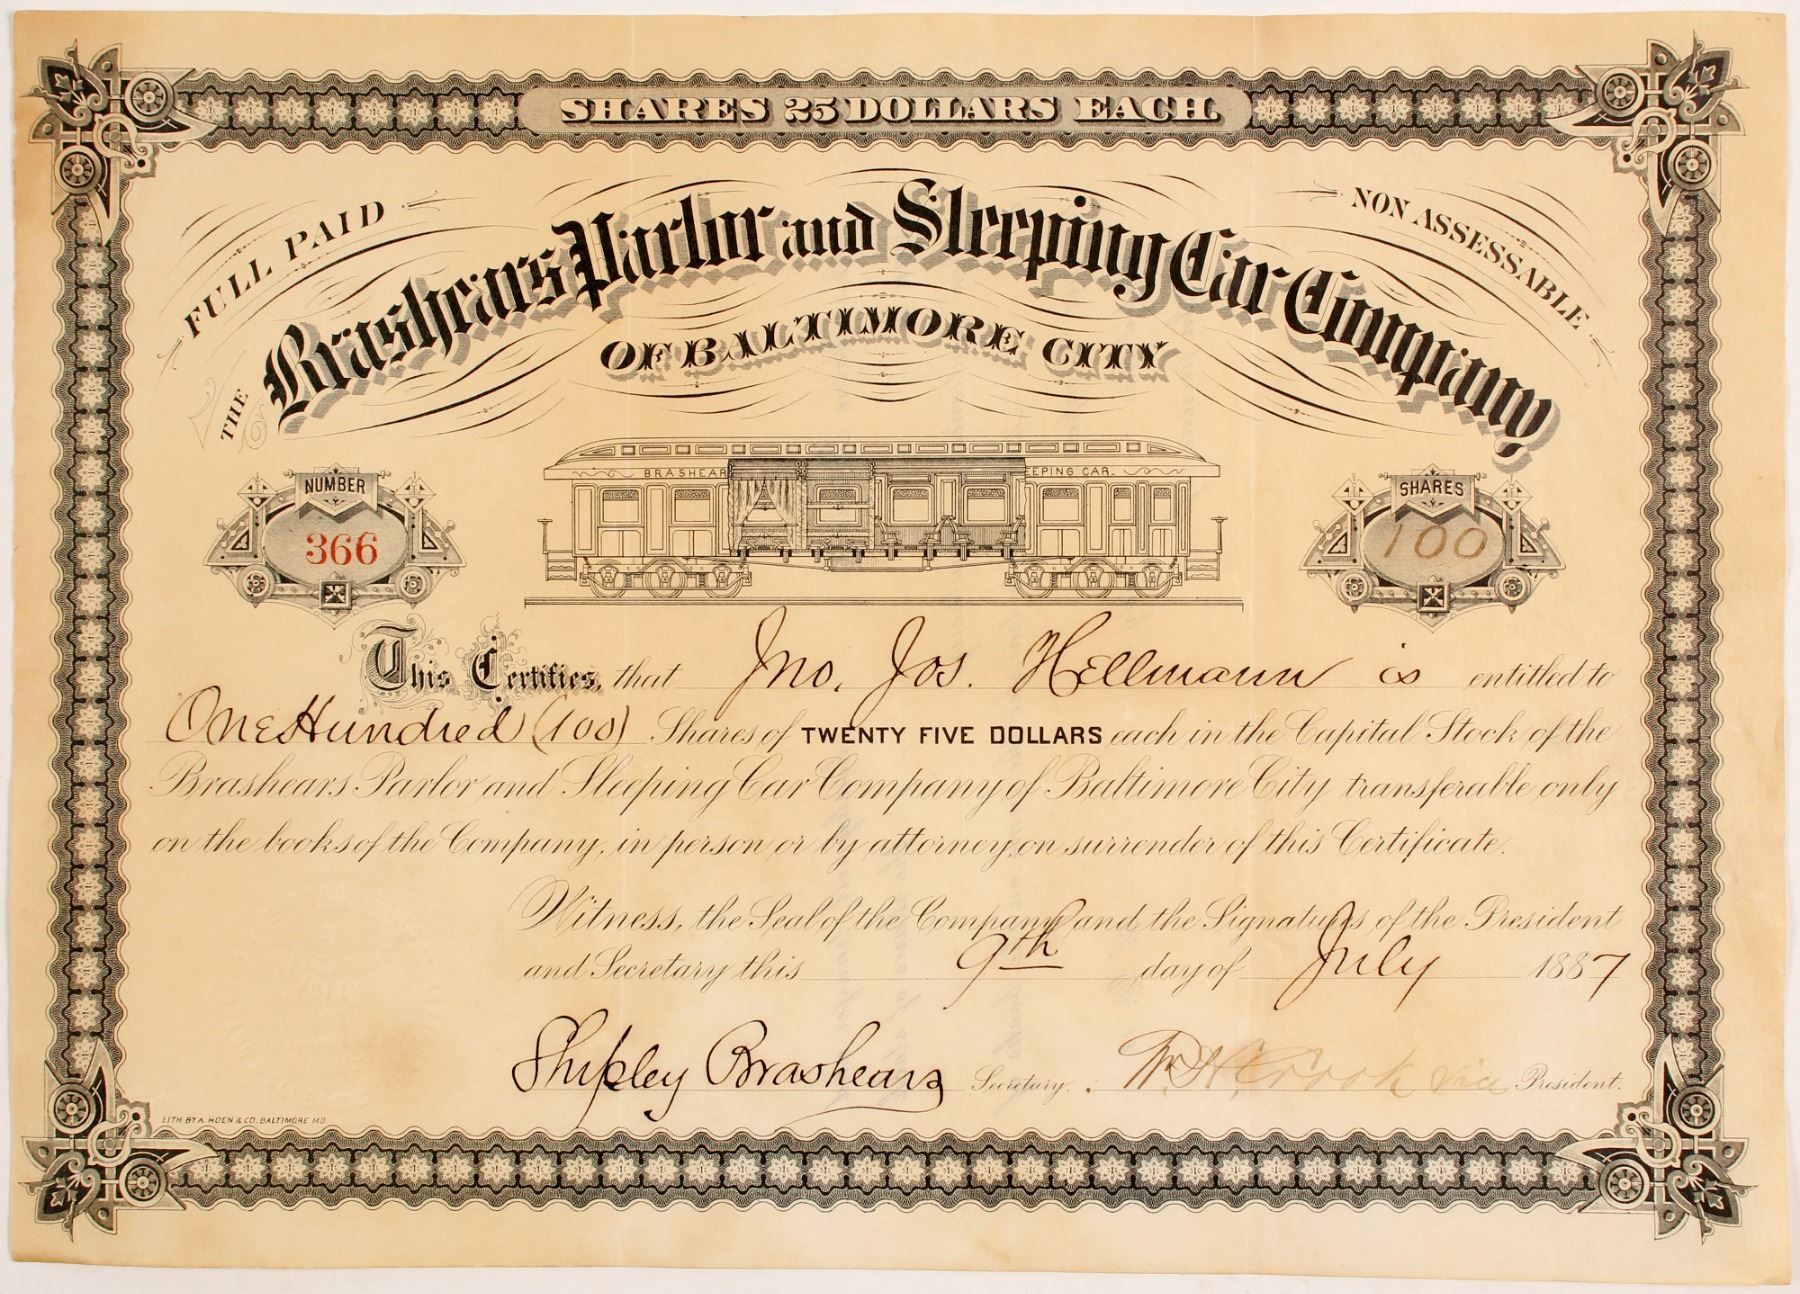 SHARES 25 DOLLARS EACH.
FULL PAID
NON ASSESSABLE
THE Brashears Parlor and Sleeping Car Company
OF BALTIMORE CITY
BRASHEAR EEPING CAR.
NUMBER
366
SHARES
100
This Certifies, that Jno. Jos. Hellmann is entitled to
One Hundred (100) Shares of TWENTY FIVE DOLLARS each in the Capital Stock of the
Brashears Parlor and Sleeping Car Company of Baltimore City transferable only
on the books of the Company, in person or by attorney, on surrender of this Certificate.
Witness, the Seal of the Company and the Signatures of the President
and Secretary this 9th day of July 1887
Shipley Brashears Secretary. Wm H Crook Vice President.
LITH. BY A. HOEN & CO. BALTIMORE MD.